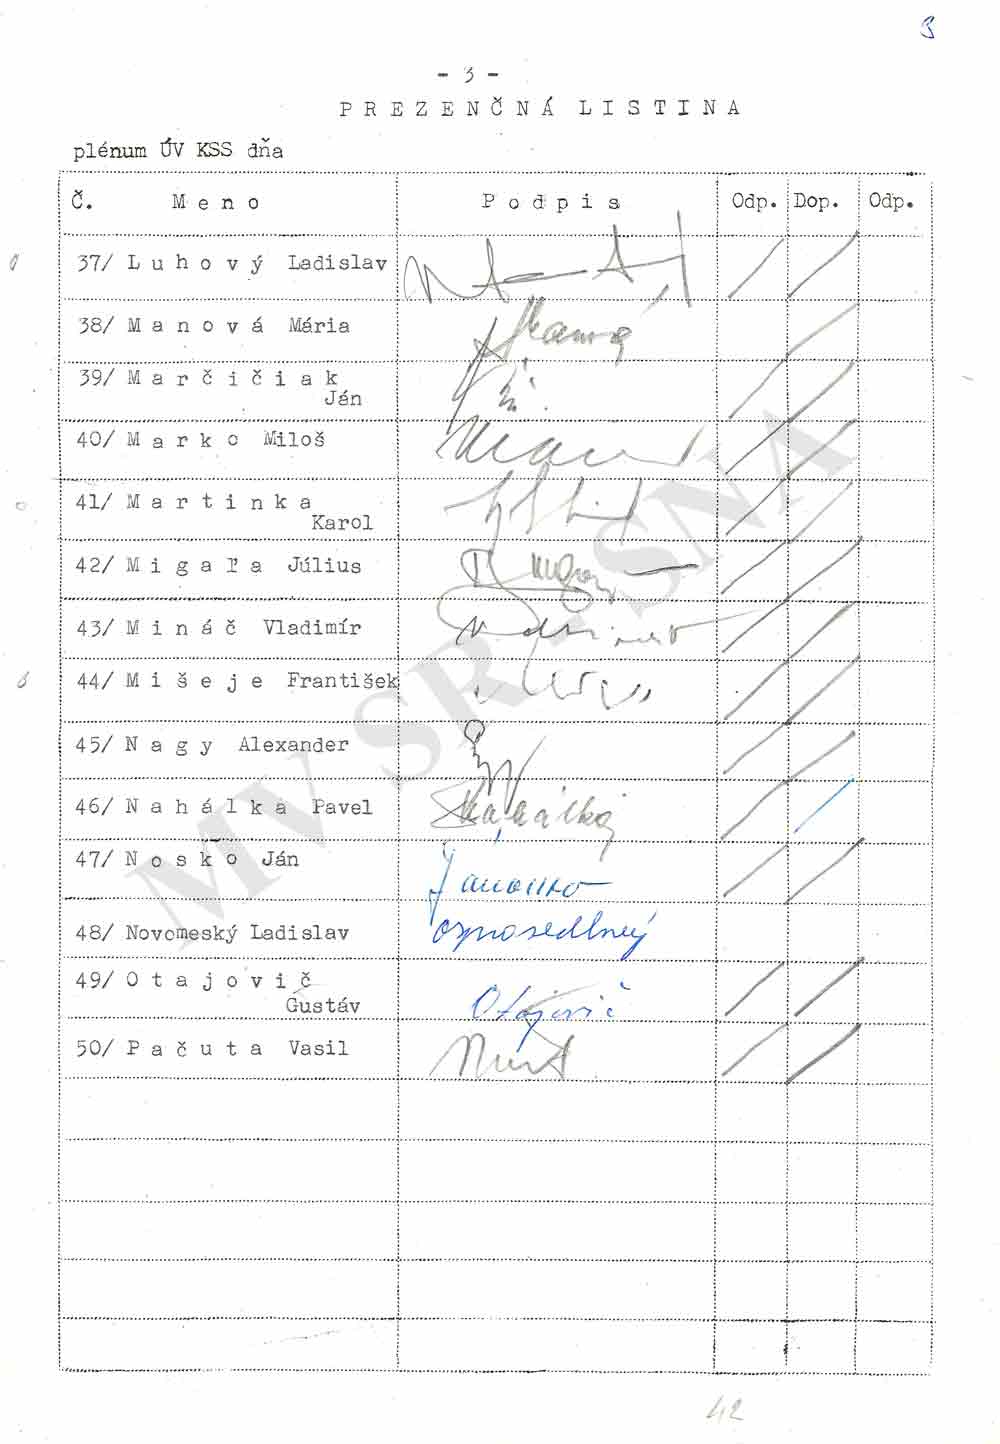 3
- 3 -
PREZENČNÁ LISTINA
plénum ÚV KSS dňa
Č. Meno Podpis Odp. Dop. Odp.
37/ Luhový Ladislav
38/ Manová Mária
39/ Marčičiak
Ján
40/ Marko Miloš
41/ Martinka
Karol
42/ Migaľa Július
43/ Mináč Vladimír
44/ Mišeje František
45/ Nagy Alexander
46/ Nahálka Pavel Nahálka
47/ Nosko Ján
48/ Novomeský Ladislav ospravedlnený
49/ Otajovič
Gustáv Otajovič
50/ Pačuta Vasil
42
MV SR - SNA